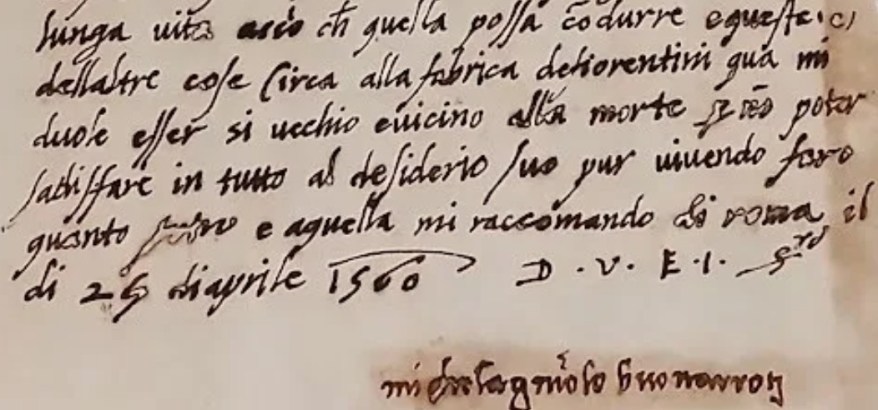 lunga vita acio ch quella possa cōdurre e queste e
dellaltre cose Circa alla fabrica defiorentini qua mi
duole esser si vechio e vicino alla morte p nō poter
sadisfare in tutto al desiderio suo pur vivendo faro
quanto e aquella mi raccomando di roma il
di 25 di aprile 1560 D. V. E. I. s^rd
michelagniolo buonarroti